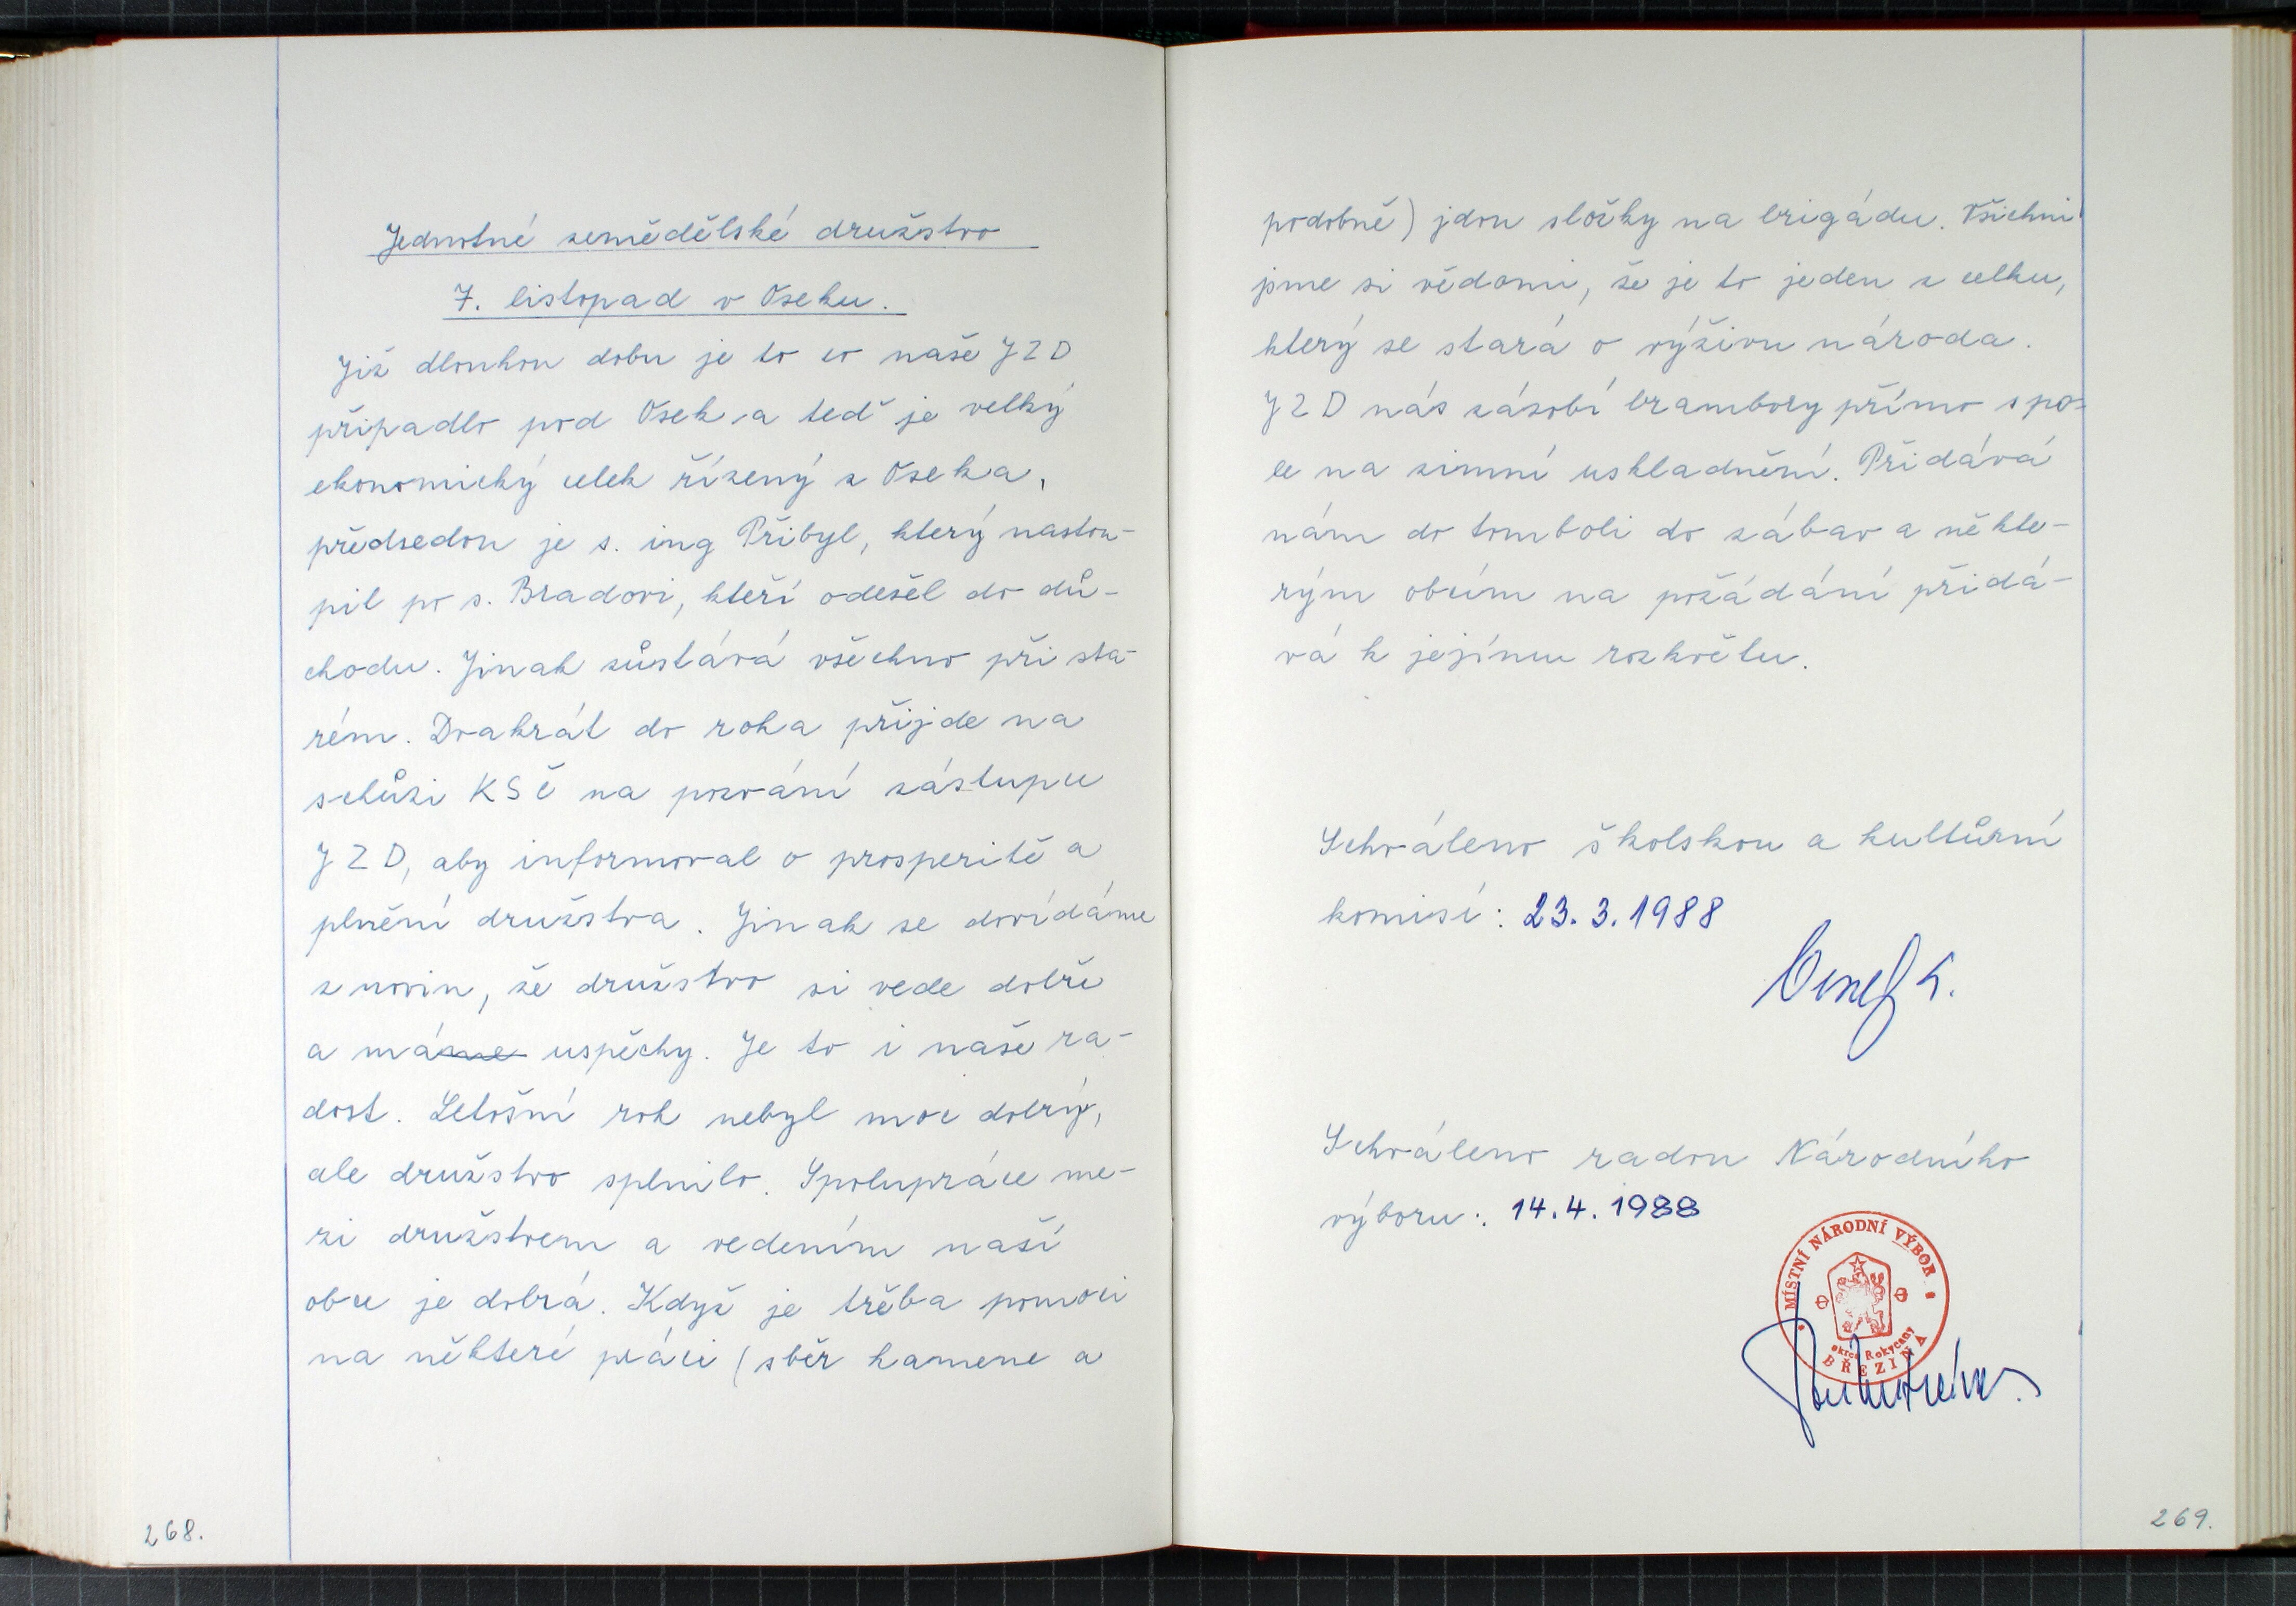 Jednotné zemědělské družstvo
7. listopad v Oseku.
Již dlouhou dobu je to co naše JZD
připadlo pod Osek a teď je velký
ekonomický celek řízený z Oseka,
předsedou je s. ing Přibyl, který nastou-
pil po s. Bradovi, kteří odešel do dů-
chodu. Jinak zůstává všechno při sta-
rém. Dvakrát do roka přijde na
schůzi KSČ na pozvání zástupce
JZD, aby informoval o prosperitě a
plnění družstva. Jinak se dovídáme
z novin, že družstvo si vede dobře
a máme uspěchy. Je to i naše ra-
dost. Letošní rok nebyl moc dobrý,
ale družstvo splnilo. Spolupráce me-
zi družstvem a vedením naší
obce je dobrá. Když je třeba pomoci
na některé práci (sběr kamene a
268.
podobně) jdou složky na brigádu. Všichni
jsme si vědomi, že je to jeden z celku,
který se stará o výživu národa.
JZD nás zásobí brambory přímo s po-
le na zimní uskladnění. Přidává
nám do tomboli do zábav a někte-
rým obcím na požádání přidá-
vá k jejímu rozkvětu.
Schváleno školskou a kultůrní
komisí: 23.3.1988
Schváleno radou Národního
výboru: 14.4.1988
MÍSTNÍ NÁRODNÍ VÝBOR
okres Rokycany
BŘEZINA
269.